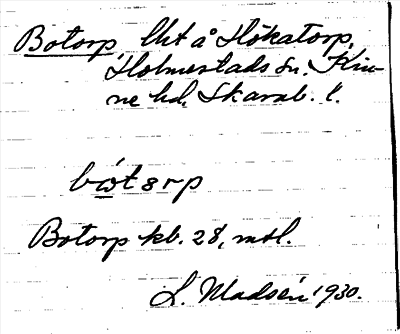 Botorp lht å Hökatorp,
Holmestads sn. Kin-
ne hd, Skarab. l.
bótorp
Botorp kb. 28, mtl.
L. Madsén 1930.